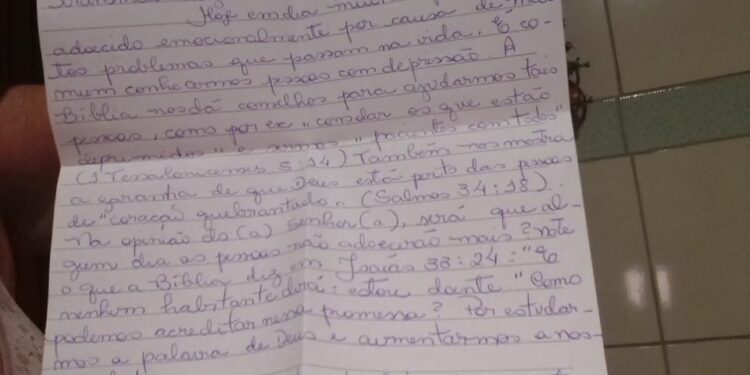 Hoje em dia
adoecido emocionalmente por causa de
tos problemas que passam na vida. É co-
mum conhecermos pessoas com depressão. A
Bíblia nos dá conselhos para ajudarmos tais
pessoas, como por ex "consolar os que estão
deprimidos" e sermos "pacientes com todos"
(1 Tessalonicenses 5:14) Também nos mostra
a garantia de que Deus está perto das pessoas
de "coração quebrantado." (Salmos 34:18).
Na opinião do(a) senhor(a), será que al-
gum dia as pessoas não adoecerão mais? note
o que a Bíblia diz em Isaías 33:24: "E
nenhum habitante dirá: estou doente" Como
podemos acreditar nessa promessa? Por estudar-
mos a palavra de Deus e aumentarmos a nos-